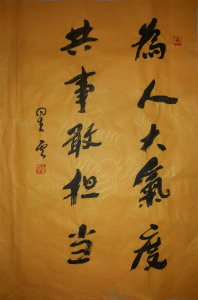 為人大氣度
共事敢担当
星雲